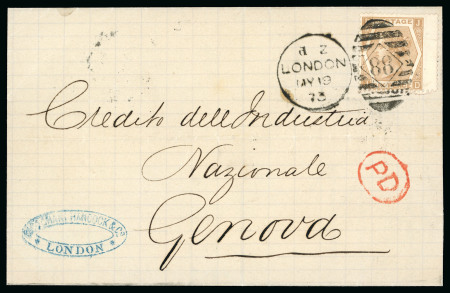 POSTAGE
d 2
LONDON
MY 19
73
88
Credito dell'Industria
Nazionale
Genova
PD
HANCOCK & Co
LONDON